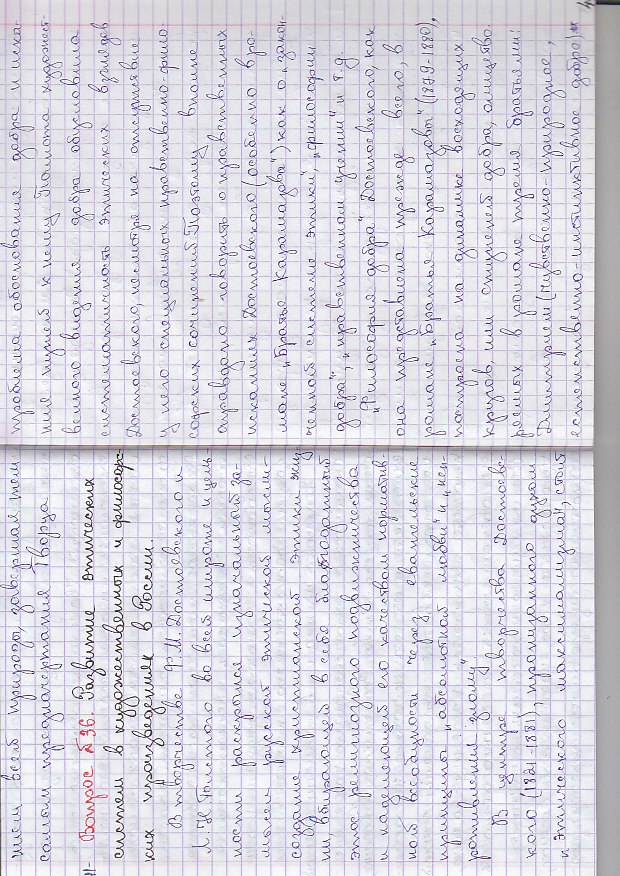 нием всей природы, завершая тем
самым предначертания Творца.
Вопрос №36. Развитие этических
систем в художественных и философс-
ких произведениях в России.
В творчестве Ф.М. Достоевского и
Л.Н. Толстого во всей широте и цель-
ности раскрылся изначальный за-
мысел русской этической мысли –
создание христианской этики жиз-
ни, вбирающей в себя благодатный
этос религиозного подвижничества
и наделяющей его качеством норматив-
ной всеобщности через евангельские
принципы „абсолютной любви" и „неп-
ротивления злому".
В центре творчества Достоевс-
кого (1821-1881), пронизанного духом
„этического максимализма", стоит
проблема обоснования добра и иска-
ние путей к нему. Полнота художест-
венного видения добра обусловила
систематичность этических взглядов
Достоевского, несмотря на отсутствие
у него специальных нравственно-фило-
софских сочинений. Поэтому вполне
оправдано говорить о нравственных
исканиях Достоевского (особенно в ро-
мане „Братья Карамазовы"), как о „закон-
ченной системе этики", „философии
добра", „нравственном учении" и т.д.
„Философия добра" Достоевского, как
она представлена прежде всего, в
романе „Братья Карамазовы" (1879-1880),
построена на динамике восходящих
кругов, или ступеней добра, олицетво-
ренных в романе тремя братьями:
Дмитрием (чувственно-природное,
естественно-инстинктивное добро),